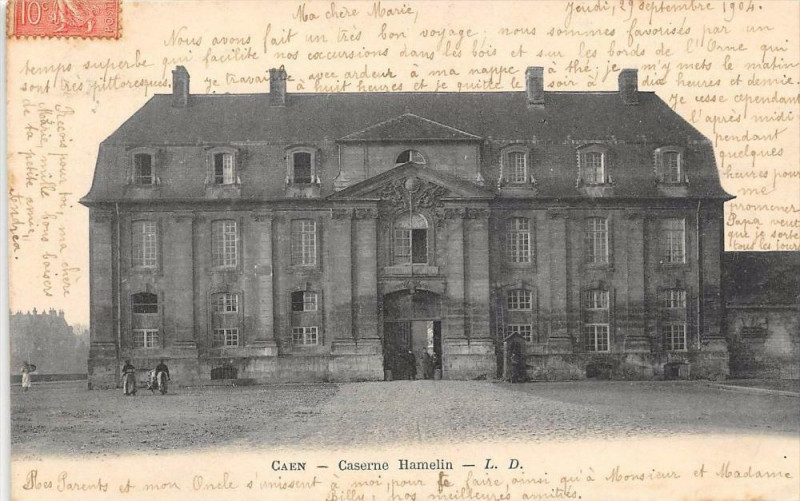 10c
Jeudi, 29 Septembre 1904.
Ma chère Marie,
Nous avons fait un très bon voyage ; nous sommes favorisés par un
temps superbe qui facilite nos excursions dans les bois et sur les bords de l'Orne qui
sont très pittoresques. Je travaille avec ardeur à ma nappe à thé ; je m'y mets le matin
à huit heures et je quitte le soir à dix heures et demie.
Je cesse cependant
l'après midi
pendant
quelques
heures pour
me
promener.
Papa veut
que je sorte
tous les jours
Reçois pour toi, ma chère
Marie, mille bons baisers
de ta petite amie,
Andrea.
CAEN – Caserne Hamelin – L. D.
Mes Parents et mon Oncle s'unissent à moi, pour te faire, ainsi qu'à Monsieur et Madame
Dilly, nos meilleures amitiés.